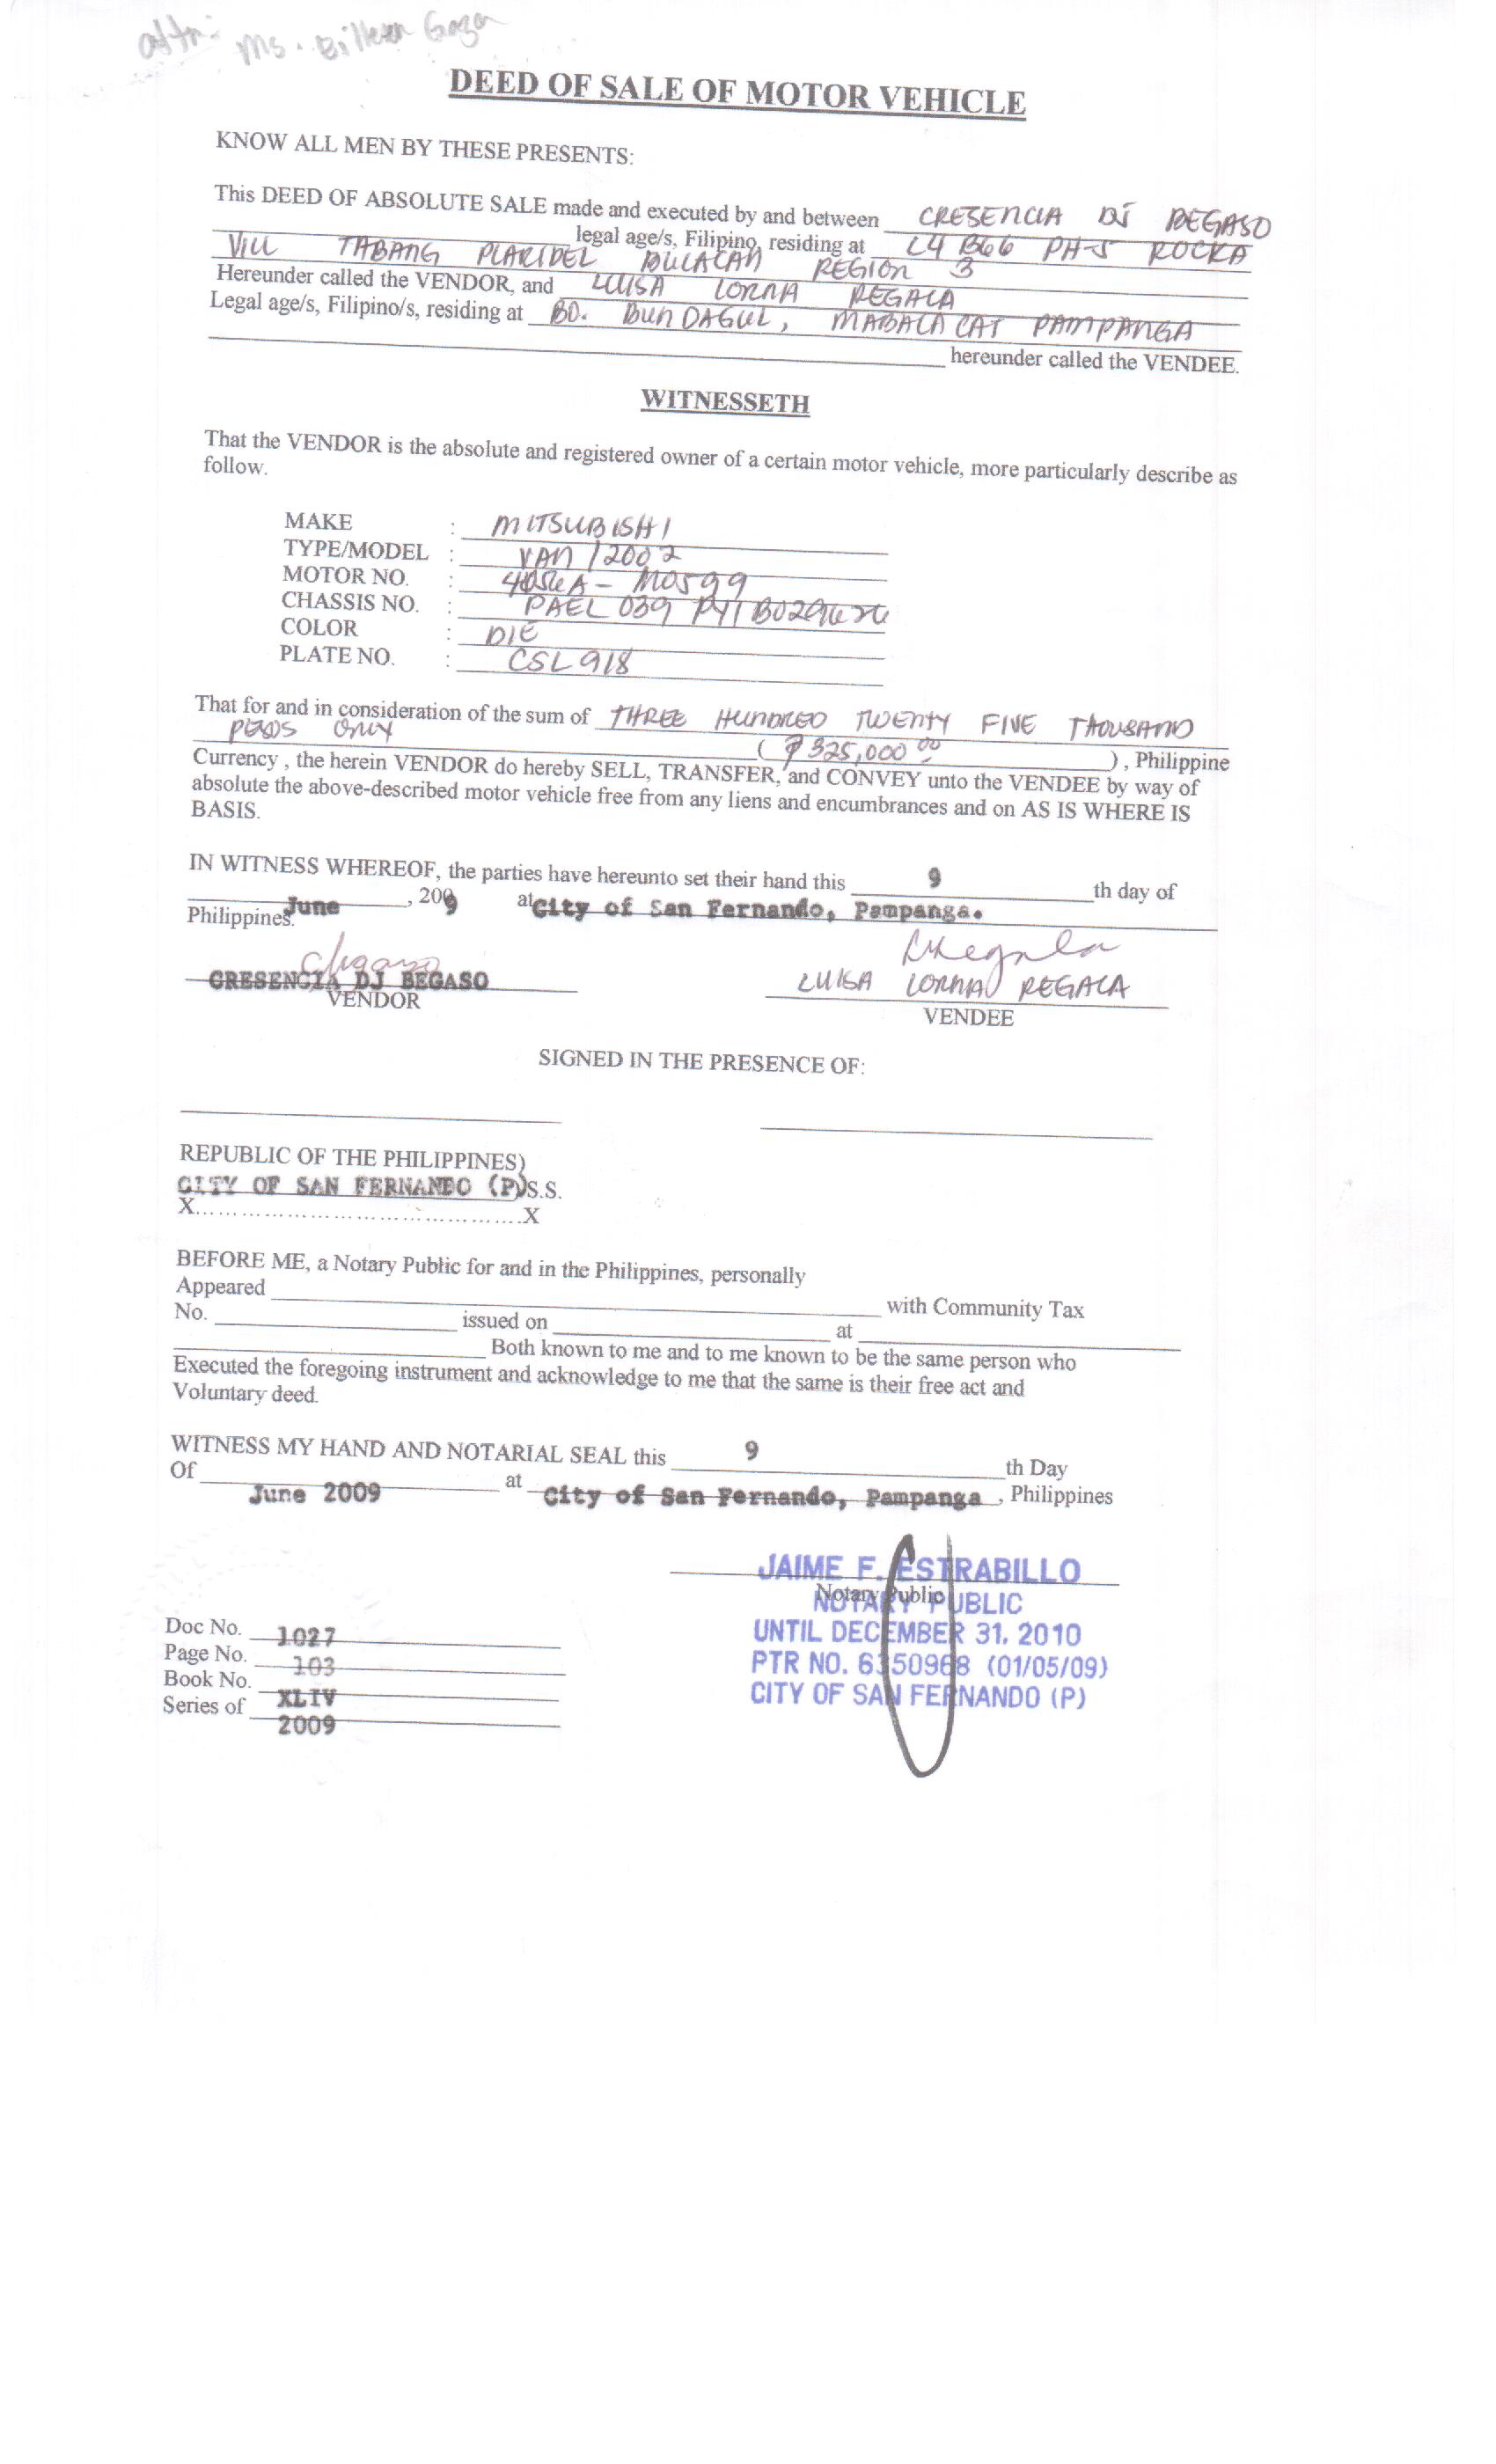 attn: Ms. Eilleen Gaza
DEED OF SALE OF MOTOR VEHICLE
KNOW ALL MEN BY THESE PRESENTS:
This DEED OF ABSOLUTE SALE made and executed by and between CRESENCIA DJ BEGASO
legal age/s, Filipino, residing at L4 B66 PH-5 ROCKA
VILL TABANG PLARIDEL BULACAN REGION 3
Hereunder called the VENDOR, and LUISA LORNA REGALA
Legal age/s, Filipino/s, residing at BO. BUNDAGUL, MABALACAT PAMPANGA
hereunder called the VENDEE.
WITNESSETH
That the VENDOR is the absolute and registered owner of a certain motor vehicle, more particularly describe as
follow.
MAKE : MITSUBISHI
TYPE/MODEL : VAN / 2002
MOTOR NO. :
CHASSIS NO. :
COLOR :
PLATE NO. : CSL 918
That for and in consideration of the sum of THREE HUNDRED TWENTY FIVE THOUSAND
PESOS ONLY (₱ 325,000.00), Philippine
Currency , the herein VENDOR do hereby SELL, TRANSFER, and CONVEY unto the VENDEE by way of
absolute the above-described motor vehicle free from any liens and encumbrances and on AS IS WHERE IS
BASIS.
IN WITNESS WHEREOF, the parties have hereunto set their hand this 9 th day of
June , 2009 at City of San Fernando, Pampanga.
Philippines.
CRESENCIA DJ BEGASO
VENDOR
LUISA LORNA REGALA
VENDEE
SIGNED IN THE PRESENCE OF:
REPUBLIC OF THE PHILIPPINES)
CITY OF SAN FERNANDO (P)S.S.
X.......................................X
BEFORE ME, a Notary Public for and in the Philippines, personally
Appeared with Community Tax
No. issued on at
Both known to me and to me known to be the same person who
Executed the foregoing instrument and acknowledge to me that the same is their free act and
Voluntary deed.
WITNESS MY HAND AND NOTARIAL SEAL this 9 th Day
Of June 2009 at City of San Fernando, Pampanga , Philippines
JAIME F. ESTRABILLO
Notary Public
NOTARY PUBLIC
UNTIL DECEMBER 31, 2010
PTR NO. 6350968 (01/05/09)
CITY OF SAN FERNANDO (P)
Doc No. 1027
Page No. 103
Book No. XLIV
Series of 2009